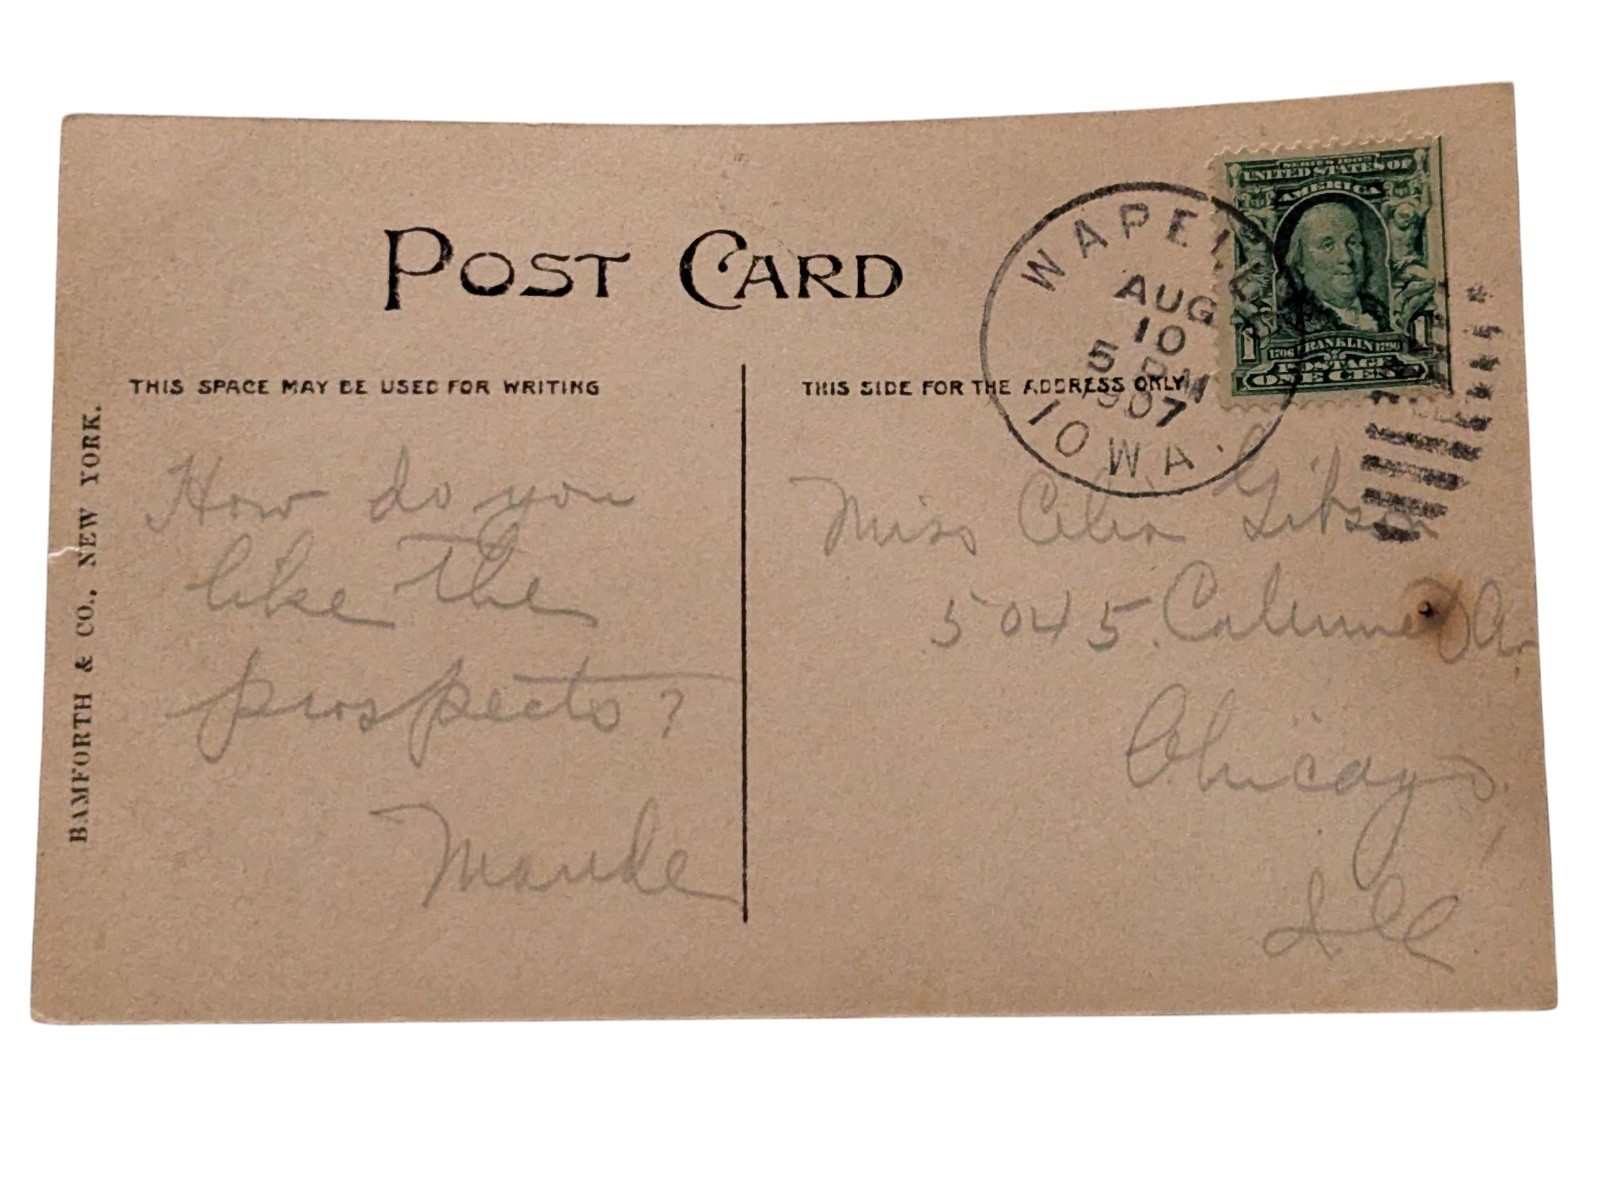 POST CARD
THIS SPACE MAY BE USED FOR WRITING
THIS SIDE FOR THE ADDRESS ONLY
BAMFORTH & CO., NEW YORK.
How do you
like the
prospects?
Maude
WAPELLO
AUG
10
5 PM
1907
IOWA.
SERIES 1902
UNITED STATES OF
AMERICA
1706 FRANKLIN 1790
1 1
POSTAGE
ONE CENT
Miss Celia Gibson
5045 Calumet Av.
Chicago,
Ill